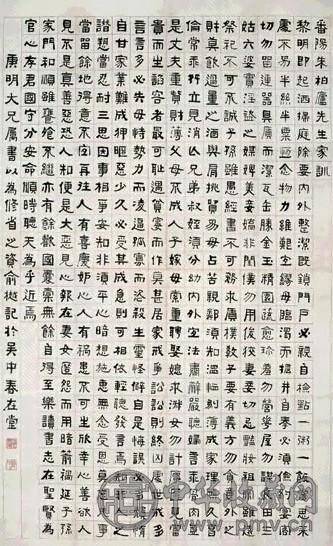 番陽朱柏廬先生家訓
黎明即起洒掃庭除要內外整潔既昏便息關鎖門戶必親自檢點一粥一飯當思來
處不易半絲半縷恆念物力維艱宜未雨而綢繆毋臨渴而掘井自奉必須儉約宴客
切勿留連器具質而潔瓦缶勝金玉飲食約而精園蔬愈珍羞勿營華屋勿謀良田三
姑六婆實淫盜之媒婢美妾嬌非閨房之福僮僕勿用俊美妻妾切忌豔妝祖宗雖遠
祭祀不可不誠子孫雖愚經書不可不讀居身務期儉樸教子要有義方勿貪意外之
財勿飲過量之酒與肩挑貿易毋占便宜見貧苦親鄰須加溫恤刻薄成家理無久享
倫常乖舛立見消亡兄弟叔姪須分多潤寡長幼內外宜法肅辭嚴聽婦言乖骨肉豈
是丈夫重貲財薄父母不成人子嫁女擇佳婿毋索重聘娶媳求淑女勿計厚奩見富
貴而生諂容者最可恥遇貧窮而作驕態者賤莫甚居家戒爭訟訟則終凶處世戒多
言言多必失毋恃勢力而凌逼孤寡毋貪口腹而恣殺生靈乖僻自是悔誤必多頹惰
自甘家業難成狎暱惡少久必受其累屈志老成急則可相依輕聽發言安知非人之
譖愬當忍耐三思因事相爭安知非我之不是須平心暗想施惠無念受恩莫忘凡事
當留餘地得意不宜再往人有喜慶不可生妒忌心人有禍患不可生喜幸心善欲人
見不是真善惡恐人知便是大惡見色而起淫心報在妻女匿怨而用暗箭禍延子孫
家門和順雖饔飧不繼亦有餘歡國課早完即囊橐無餘自得至樂讀書志在聖賢為
官心存君國守分安命順時聽天為人若此庶乎近焉
庚明大兄屬書以為修省之資俞樾記於吳中春在堂
www.pmv.cn